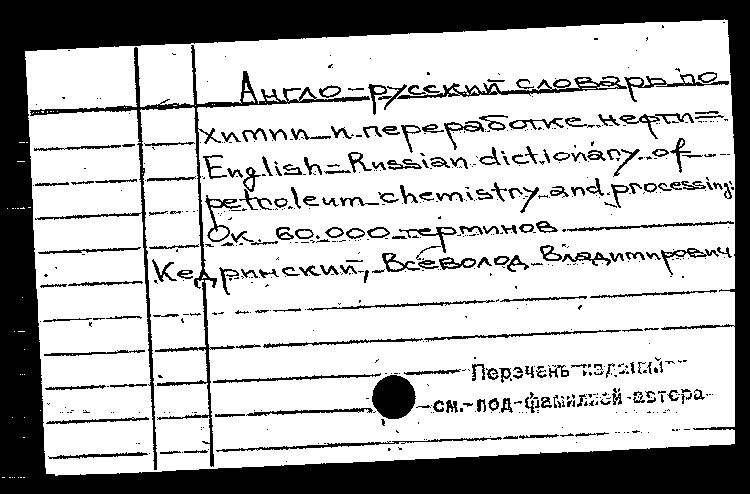 Англо-русский словарь по
химии и переработке нефти=
English-Russian dictionary of
petroleum chemistry and processing:
Ок. 60.000 терминов
Кедринский, Всеволод Владимирович
Перечень изданий
см. под фамилией автора